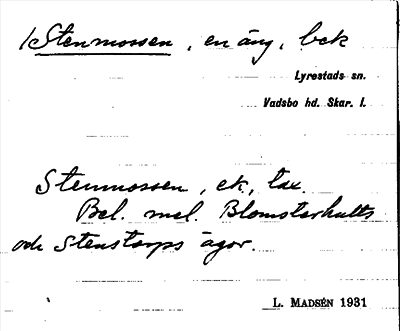 1/ Stenmossen, en äng, bek
Lyrestads sn.
Vadsbo hd. Skar. l.
Stenmossen, ek, tax.
Bel. mel. Blomsterhults
och Stenstorps ägor.
L. MADSÉN 1931